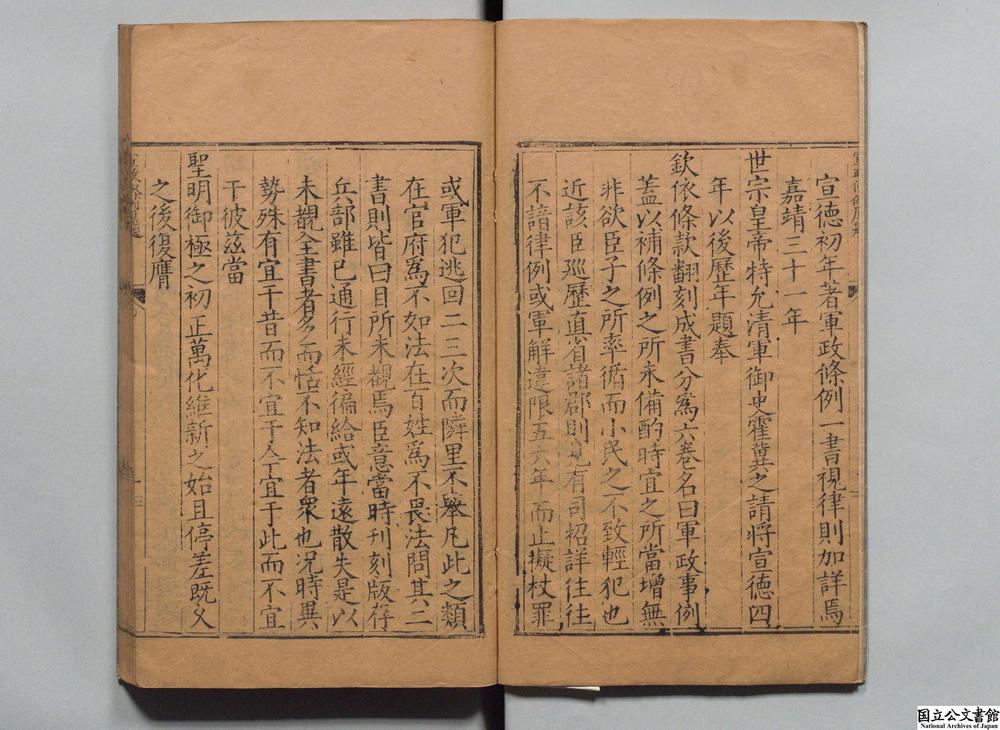 宣德初年著軍政條例一書視律則加詳焉
嘉靖三十一年
世宗皇帝特允清軍御史霍冀之請將宣德四
年以後歷年題奉
欽依條款翻刻成書分爲六卷名曰軍政事例
蓋以補條例之所未備酌時宜之所當增無
非欲臣子之所率循而小民之不致輕犯也
近該臣廵歷直省諸郡則見有司招詳往往
不諳律例或軍解違限五六年而止擬杖罪
或軍犯逃回二三次而隣里不舉凡此之類
在官府爲不如法在百姓爲不畏法問其二
書則皆曰目所未覩焉臣意當時刊刻版存
兵部雖已通行未經徧給或年遠散失是以
未觀全書者多而恬不知法者衆也况時異
勢殊有宜于昔而不宜于今宜于此而不宜
于彼茲當
聖明御極之初正萬化維新之始且停差既久
之後復膺
国立公文書館
National Archives of Japan